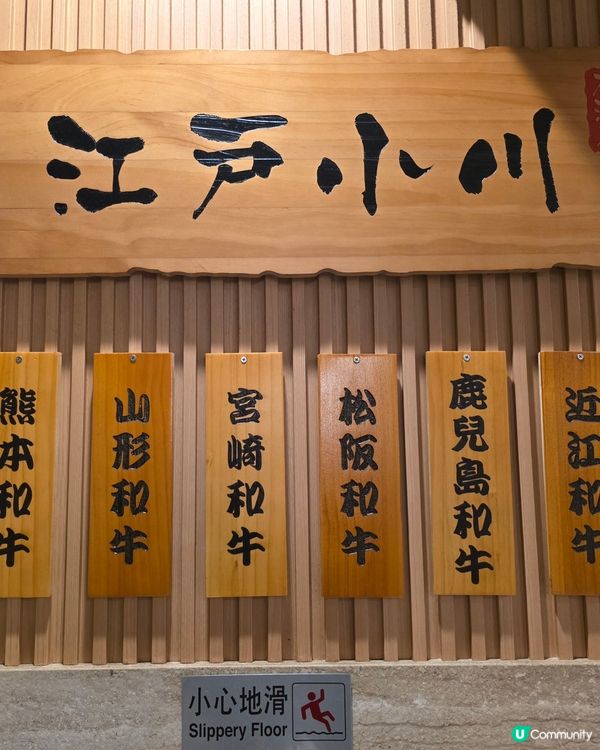 江戸小川
熊本和牛
山形和牛
宮崎和牛
松阪和牛
鹿兒島和牛
近江和牛
小心地滑
Slippery Floor
U Community